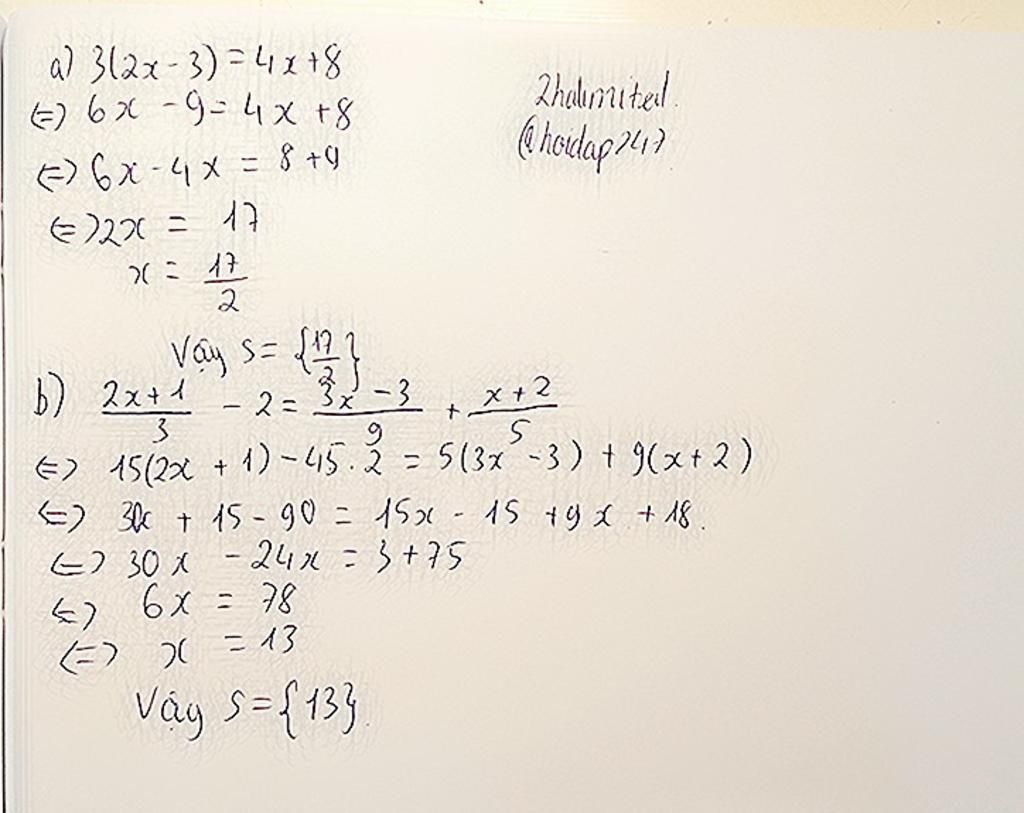 a) 3(2x - 3) = 4x + 8
⇔ 6x - 9 = 4x + 8
⇔ 6x - 4x = 8 + 9
⇔ 2x = 17
x = 17/2
Vậy S = {17/2}
2halimited.
@hoidap247
b) (2x + 1)/3 - 2 = (3x - 3)/9 + (x + 2)/5
⇔ 15(2x + 1) - 45.2 = 5(3x - 3) + 9(x + 2)
⇔ 30x + 15 - 90 = 15x - 15 + 9x + 18.
⇔ 30x - 24x = 3 + 75
⇔ 6x = 78
⇔ x = 13
Vậy S = {13}.